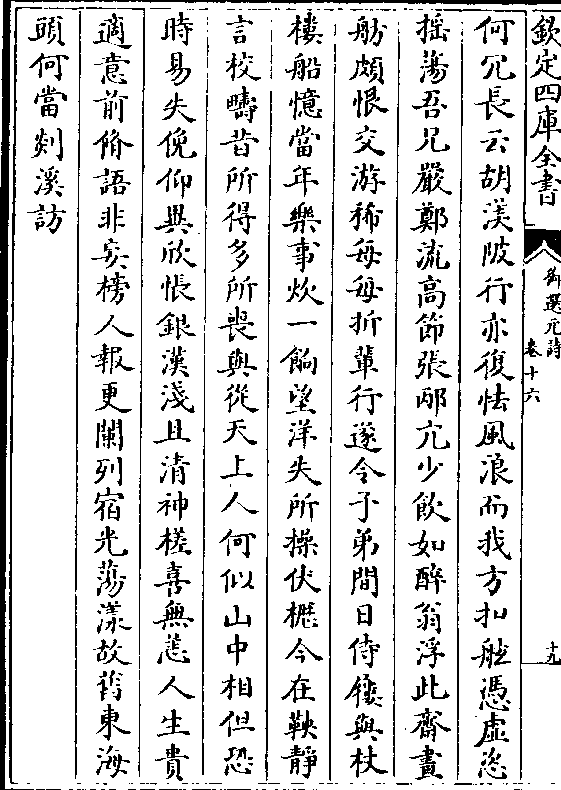 欽定四庫全書
御選元詩
卷十六
十九
何冗長云胡渼陂行亦復怯風浪而我方扣舷憑虛恣
揺蕩吾兄嚴鄭流高節張邴亢少飲如醉翁浮此齋畫
舫頗恨交游稀每每折輩行遂令子弟間日侍屨與杖
樓船憶當年樂事炊一餉望洋失所操伏櫪今在鞅靜
言校疇昔所得多所喪與從天上人何似山中相但恐
時易失俛仰異欣悵銀漢淺且清神槎喜無恙人生貴
適意前脩語非妄榜人報更闌列宿光蕩漾故舊東海
頭何當剡溪訪